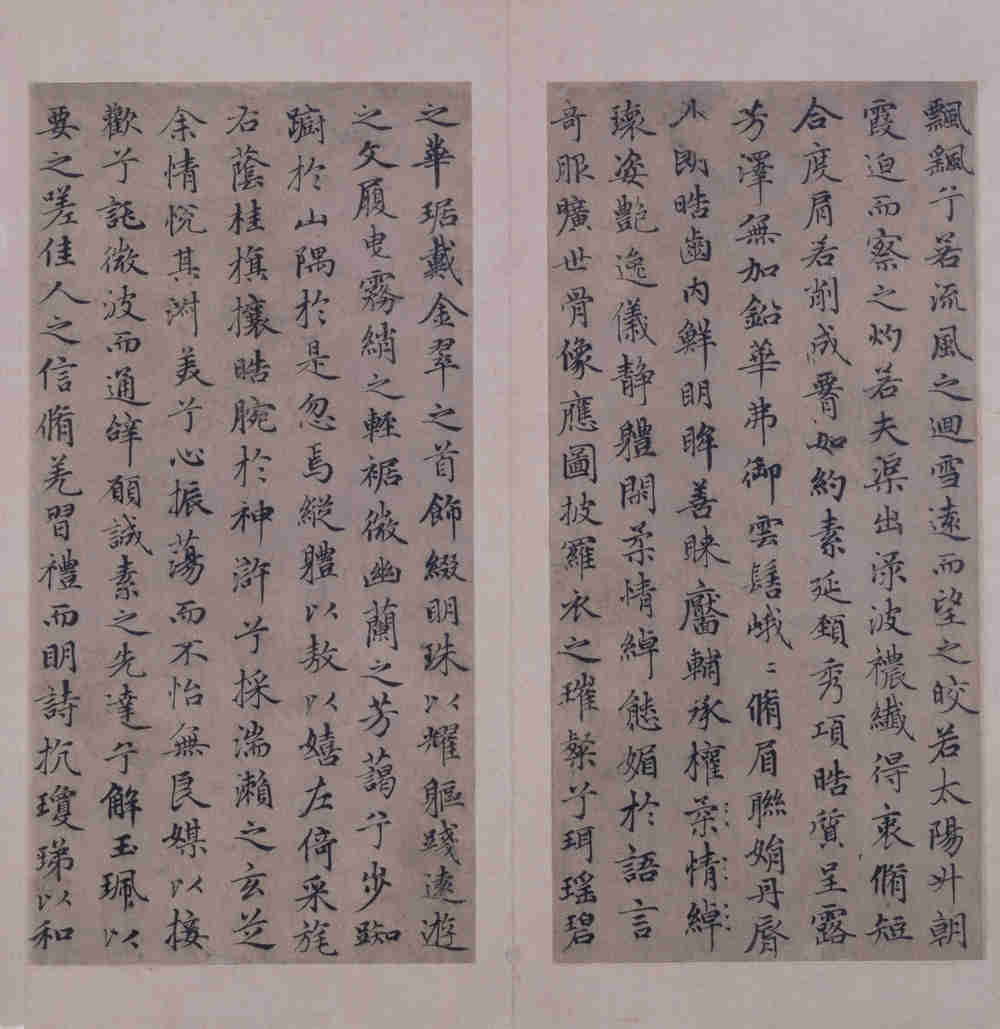 飄飖兮若流風之迴雪遠而望之皎若太陽升朝
霞迫而察之灼若夫渠出淥波穠纖得衷脩短
合度肩若削成𦝫如約素延頸秀項皓質呈露
芳澤無加鉛華弗御雲髻峨〻脩眉聯娟丹脣
外朗皓齒內鮮明眸善睞靨輔承權柔情綽
瓌姿艷逸儀靜體閑柔情綽態媚於語言
奇服曠世骨像應圖披羅衣之璀粲兮珥瑤碧
之華琚戴金翠之首飾綴明珠以耀軀踐遠遊
之文履曳霧綃之輕裾微幽蘭之芳藹兮步踟
躕於山隅於是忽焉縱體以敖以嬉左倚采旄
右蔭桂旗攘皓腕於神滸兮採湍瀨之玄芝
余情悅其淑美兮心振蕩而不怡無良媒以接
歡兮託微波而通辭願誠素之先達兮解玉珮以
要之嗟佳人之信脩羌習禮而明詩抗瓊珶以和